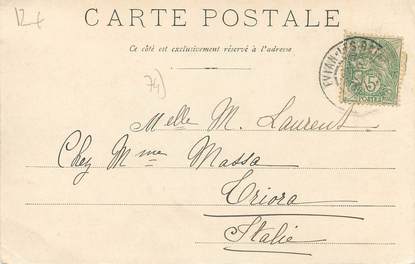 12 f
CARTE POSTALE
Ce côté est exclusivement réservé à l'adresse
EVIAN-LES-B
5c
POSTES
74)
Melle M. Laurent
Chez Mme Massa
Triora
Italie